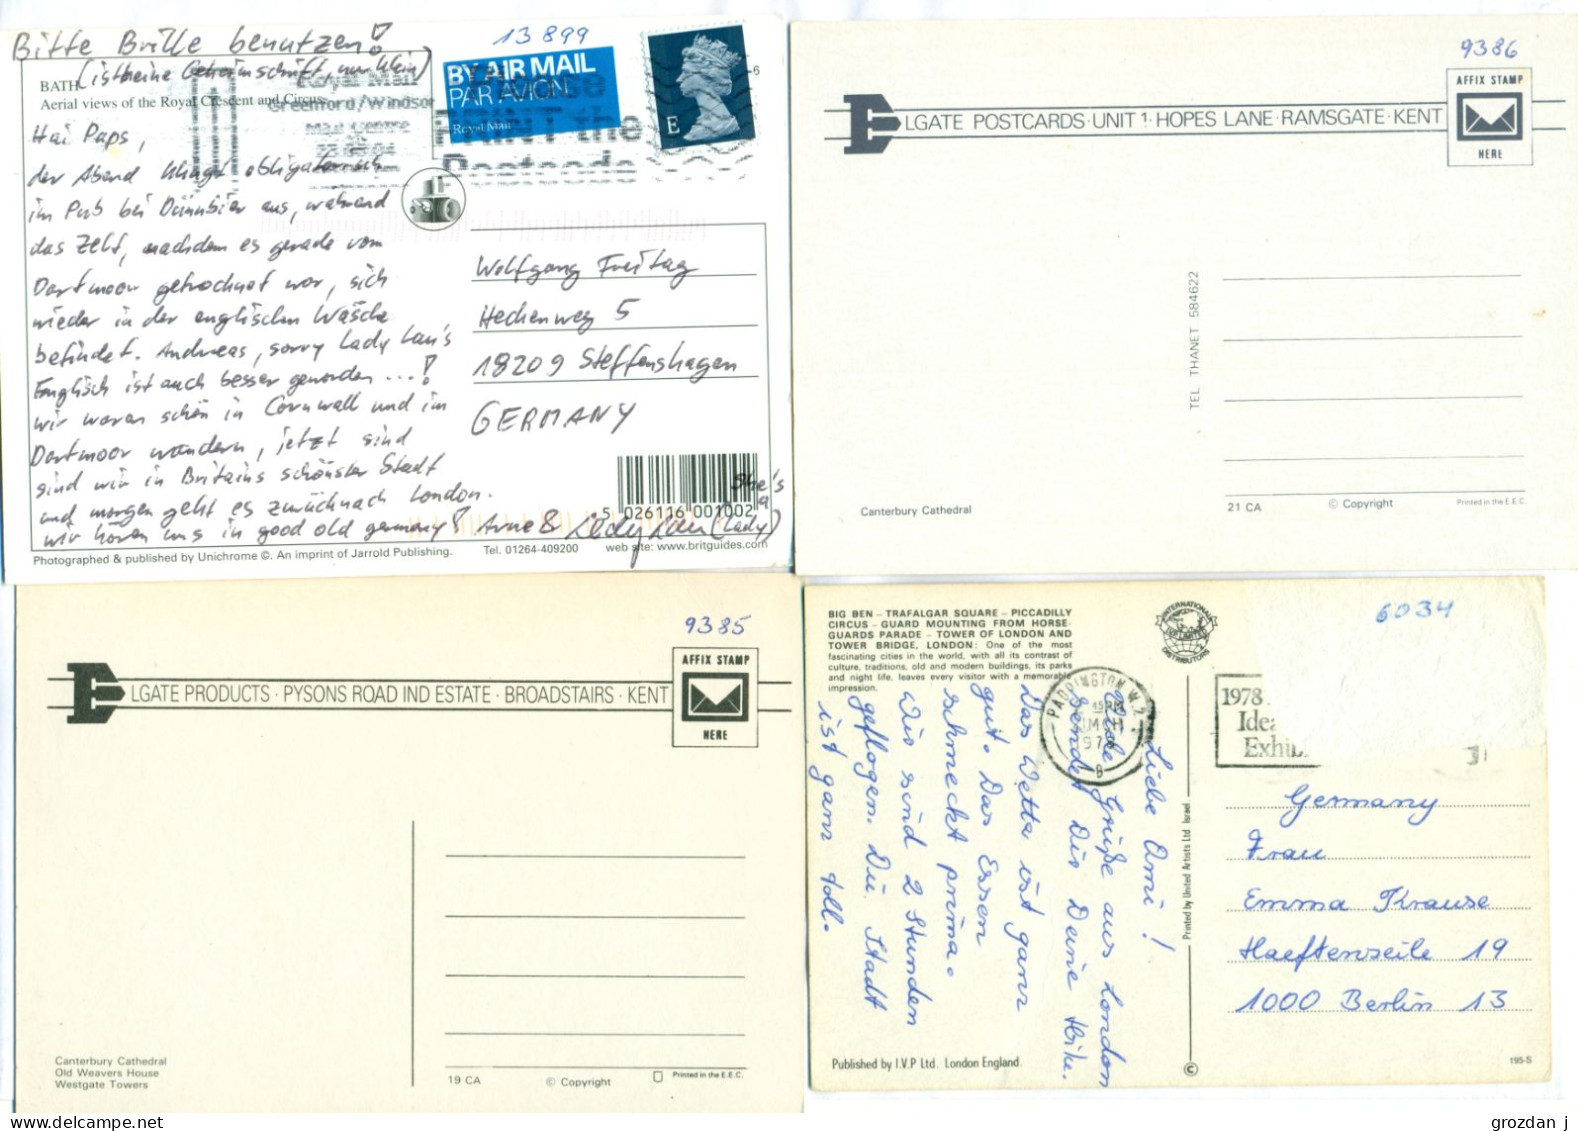 Bitte Brille benutzen!
(ist keine Geheimschrift, nur klein)
13 899
BY AIR MAIL
PAR AVION
Royal Mail
E
BATH
Aerial views of the Royal Crescent and Circus
Royal Mail
Greenford/Windsor
Mail Centre
the
Postcode
Hai Paps,
der Abend klingt obligatorisch
im Pub bei Dünnbier aus, während
das Zelt, nachdem es gerade vom
Dartmoor getrocknet war, sich
wieder in der englischen Wäsche
befindet. Andreas, sorry Lady Lau's
Englisch ist auch besser geworden ...!
wir waren schön in Cornwall und im
Dartmoor wandern, jetzt sind
sind wir in Britains schönster Stadt
und morgen geht es zurück nach London.
wir hören uns in good old germany! Arne B
She's
a
(Lady)
Wolfgang Freitag
Heckenweg 5
18209 Steffenshagen
GERMANY
5 026116 001002
Photographed & published by Unichrome ©. An imprint of Jarrold Publishing.
Tel. 01264-409200
web site: www.britguides.com
9386
AFFIX STAMP
HERE
ELGATE POSTCARDS · UNIT 1 · HOPES LANE · RAMSGATE · KENT
TEL THANET 584622
Canterbury Cathedral
21 CA
© Copyright
Printed in the E.E.C.
9385
AFFIX STAMP
HERE
ELGATE PRODUCTS · PYSONS ROAD IND ESTATE · BROADSTAIRS · KENT
Canterbury Cathedral
Old Weavers House
Westgate Towers
19 CA
© Copyright
Printed in the E.E.C.
BIG BEN – TRAFALGAR SQUARE – PICCADILLY
CIRCUS – GUARD MOUNTING FROM HORSE-
GUARDS PARADE – TOWER OF LONDON AND
TOWER BRIDGE, LONDON: One of the most
fascinating cities in the world, with all its contrast of
culture, traditions, old and modern buildings, its parks
and night life, leaves every visitor with a memorable
impression.
INTERNATIONAL
LIMITED
DISTRIBUTORS
6034
PADDINGTON W.2
1978
Idea
Exhib
Liebe Omi!
Liebe Grüße aus London
sendet Dir Deine Heike.
Das Wetter ist ganz
gut. Das Essen
schmeckt prima.
Wir sind 2 Stunden
geflogen. Die Stadt
ist ganz toll.
Germany
Frau
Emma Krause
Haeftenzeile 19
1000 Berlin 13
Printed by United Artists Ltd Israel
©
Published by I.V.P Ltd. London England.
195-S
grozdan j
www.delcampe.net